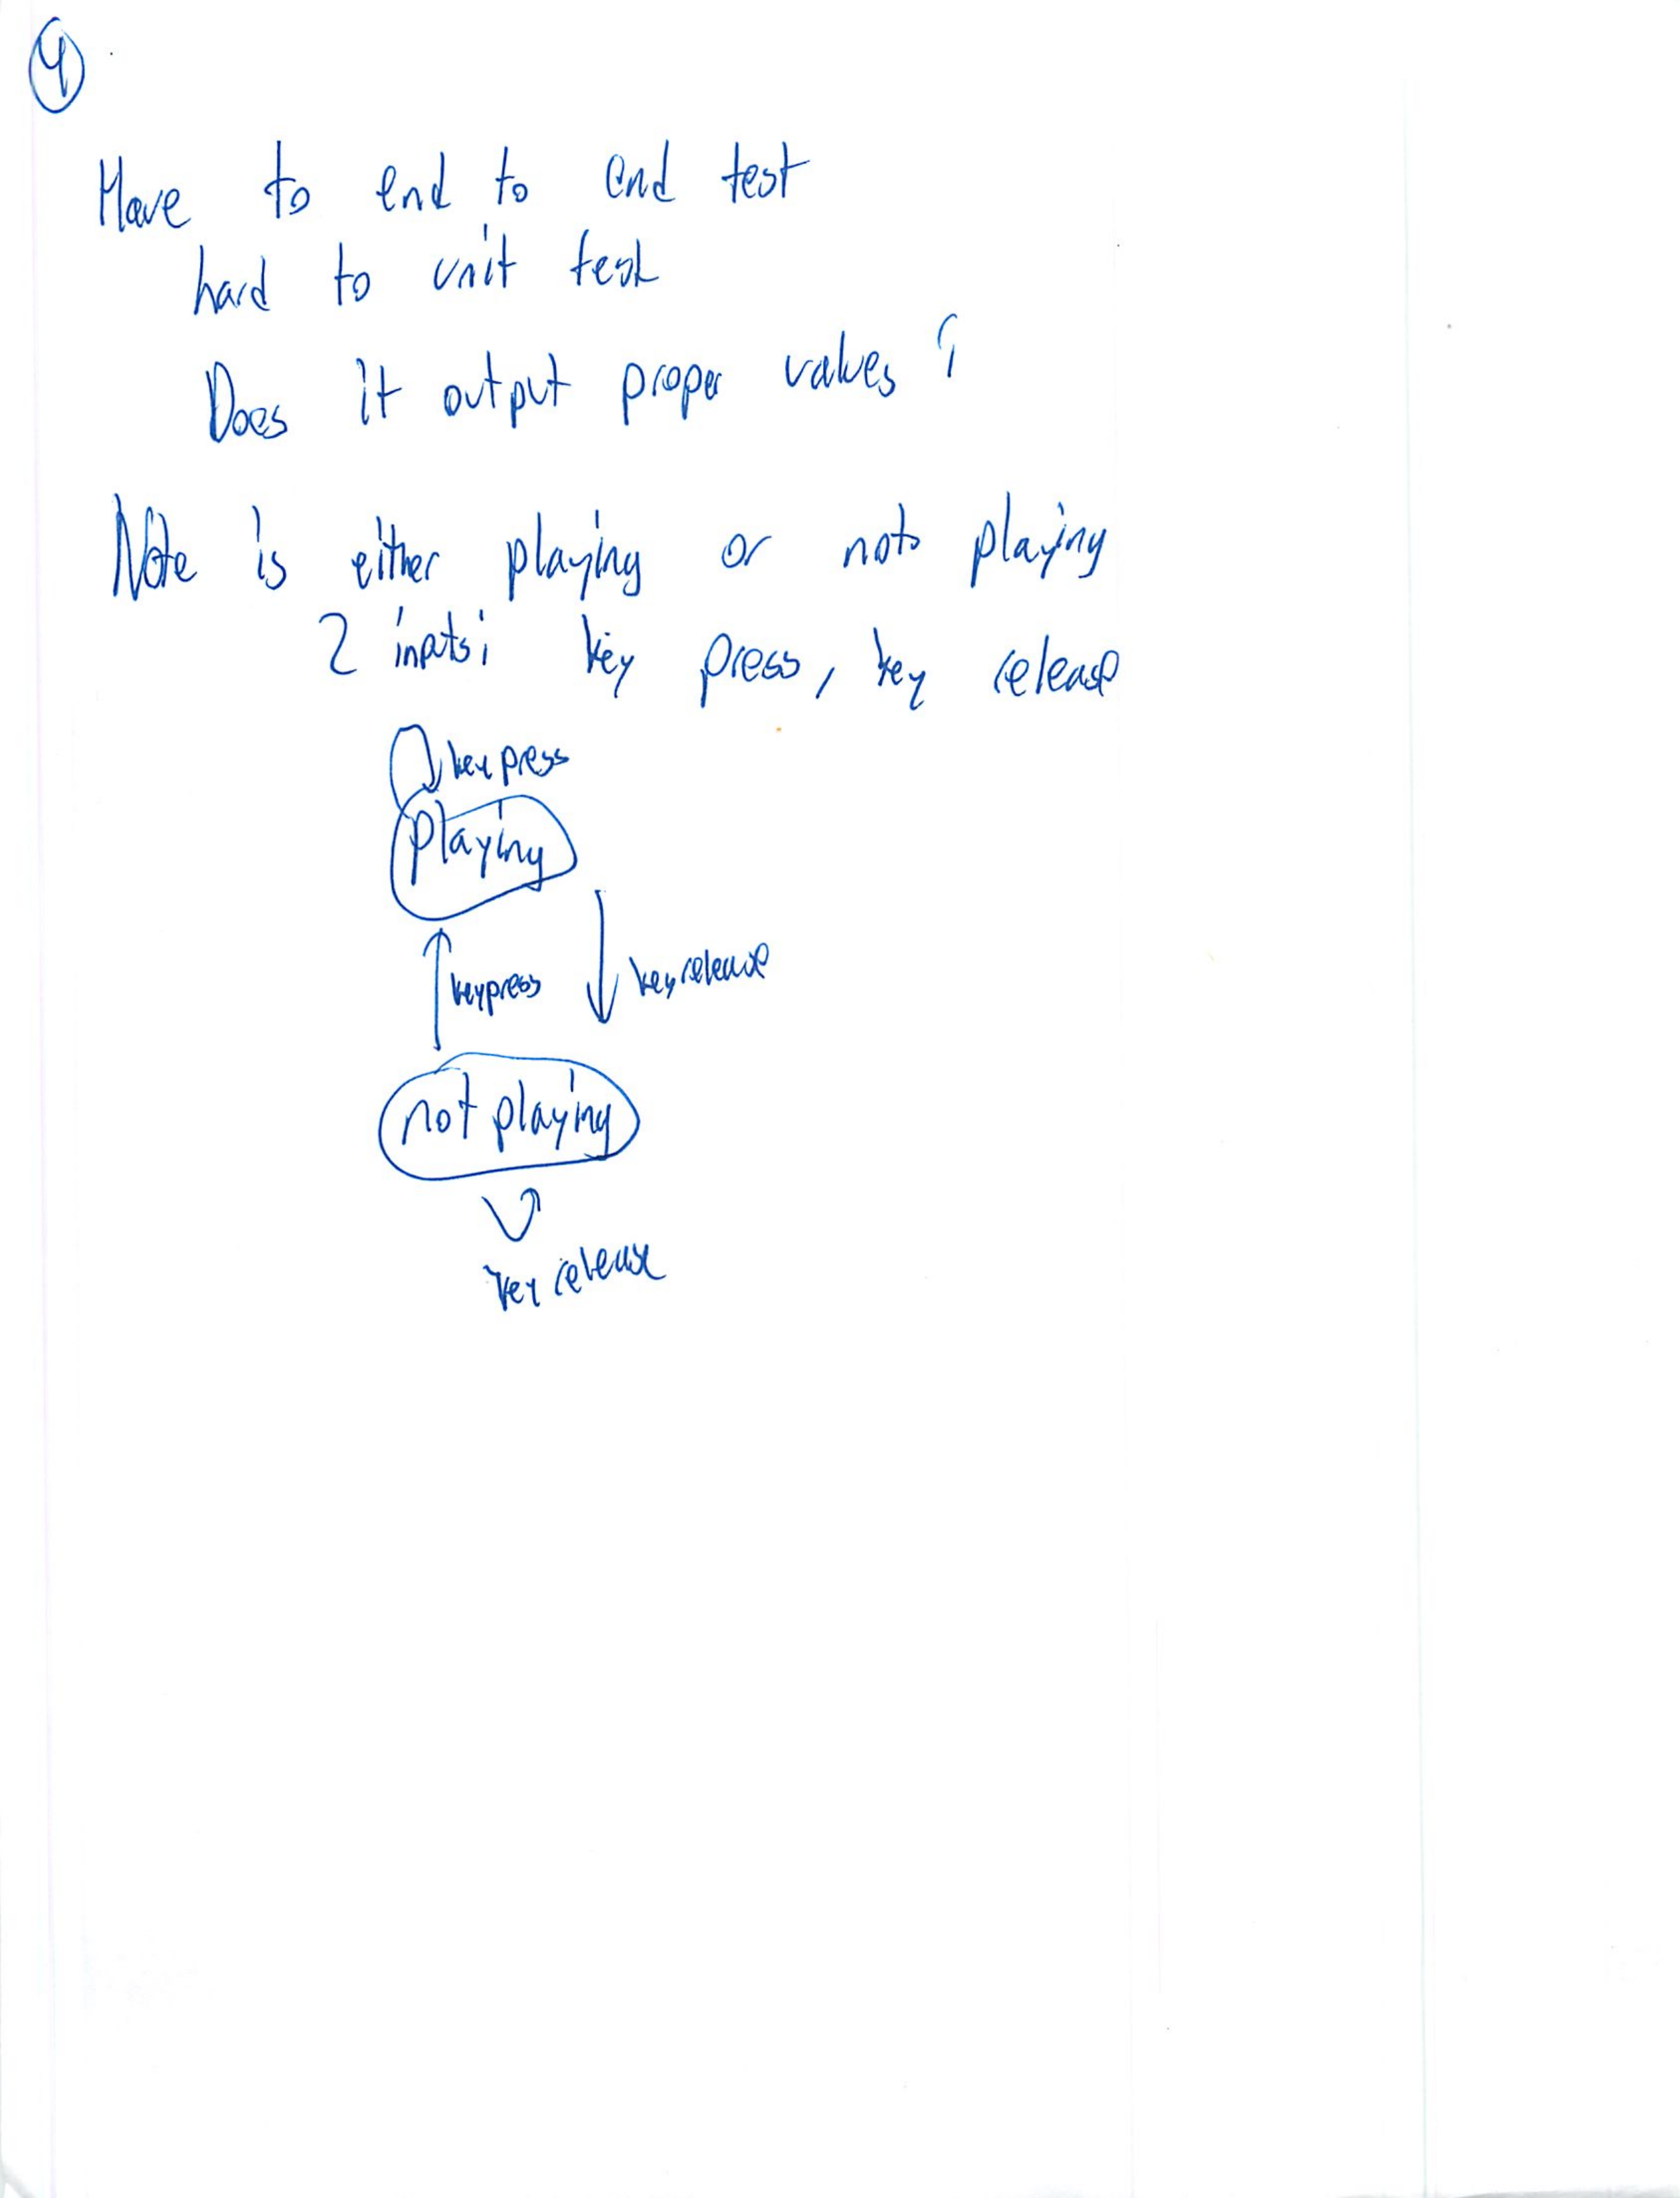 4
Have to end to end test
hard to unit test
Does it output proper values?
Note is either playing or not playing
2 inputs: key press, key release
key press
playing
keypress
key release
not playing
key release